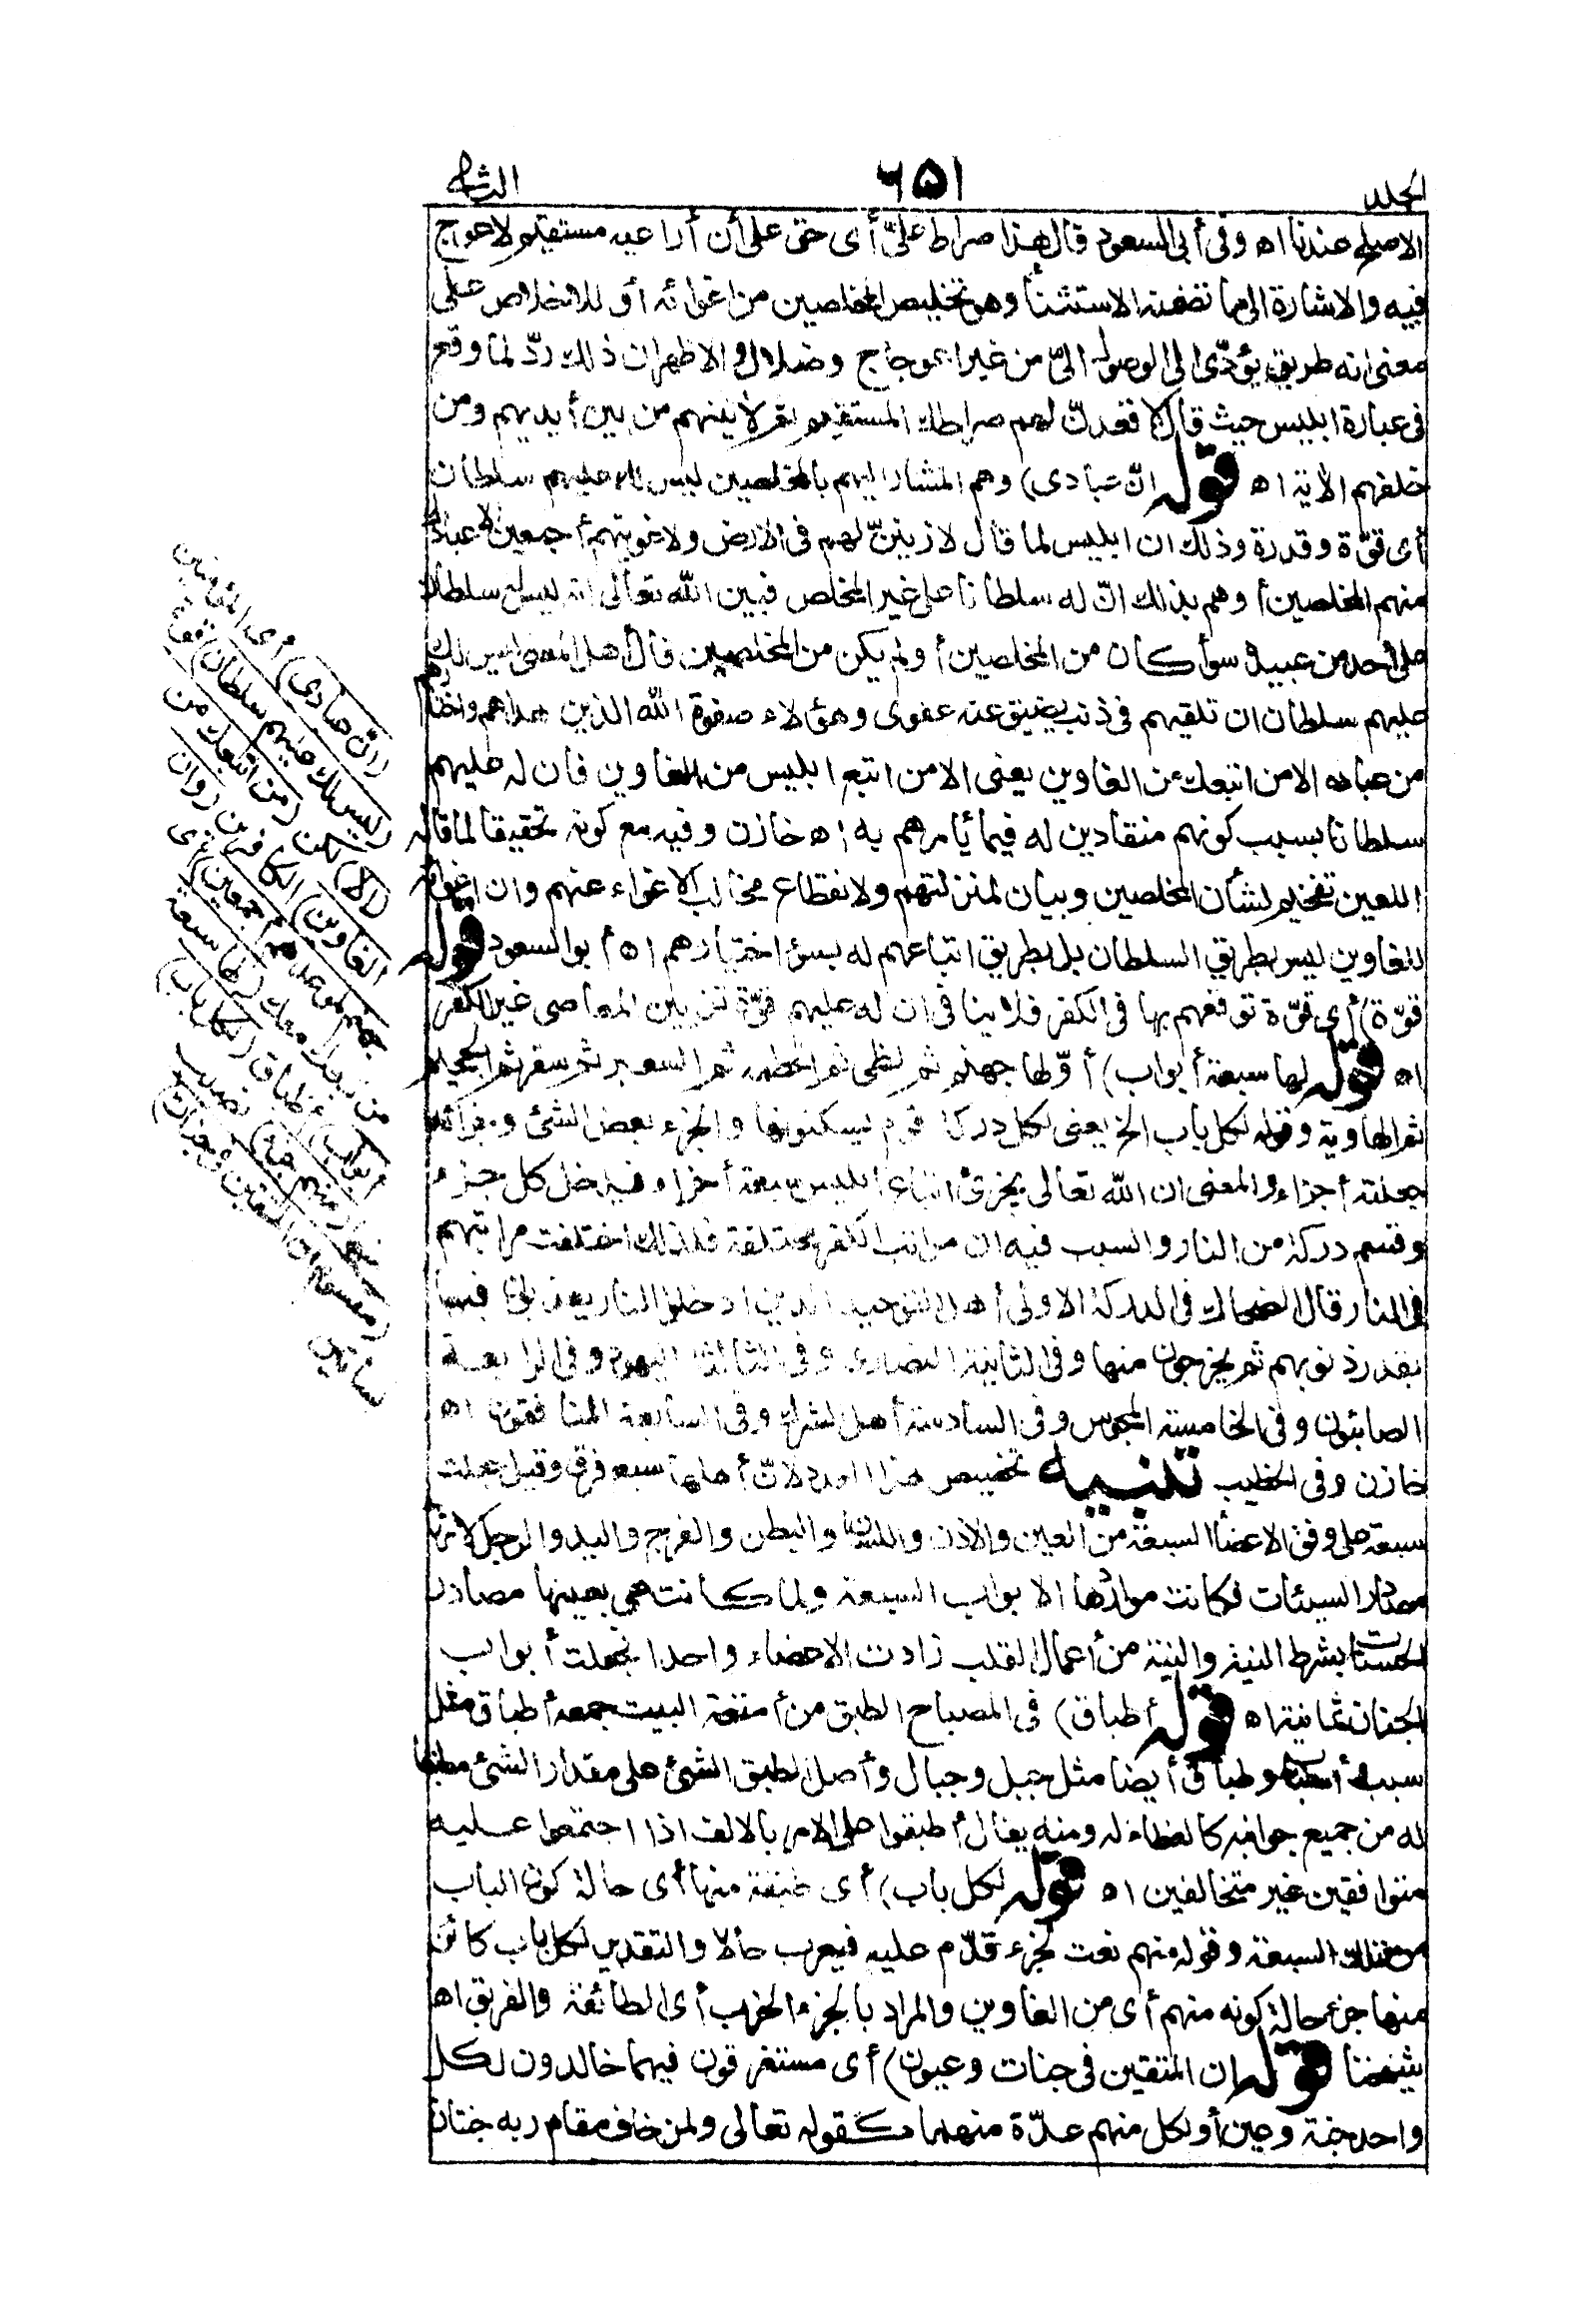 الجلد ٦٥١ الثانى
الاصلح عندنا اه وفى أبى السعود قال هذا صراط علىّ أى حق على أن أراعيه مستقيم لا عوج
فيه والاشارة الى ما تضمنه الاستثنأ وهو تخليص المخلصين من اغوائه أو للاخلاص على
معنى انه طريق يؤدّى الى الوصول الىّ من غير اعوجاج وضلال والاظهر ان ذلك ردّ لما وقع
فى عبارة ابليس حيث قال لاقعدنّ لهم صراطك المستقيم ثم لأتينهم من بين أيديهم ومن
خلفهم الأية اه قوله انّ عبادى) وهم المشار اليهم بالمخلصين ليس لك عليهم سلطان
أى قوّة وقدرة وذلك ان ابليس لما قال لازيننّ لهم فى الارض ولاغوينهم أجمعين الا عبادك
منهم المخلصين أوهم بذلك انّ له سلطانا على غير المخلص فبين الله تعالى انه ليس له سلطان
على أحد من عبيده سوأ كان من المخلصين أولم يكن من المخلصين قال أهل المعنى ليس لك
عليهم سلطان ان تلقيهم فى ذنب يضيق عنه عفوى وهؤلاء صفوة الله الذين هداهم واختارهم
من عباده الا من اتبعك من الغاوين يعنى الا من اتبع ابليس من الغاوين فان له عليهم
سلطانا بسبب كونهم منقادين له فيما يأمرهم به اه خازن وفيه مع كونه تحقيقا لما قاله
اللعين تفخيم لشأن المخلصين وبيان لمنزلتهم ولانقطاع مخالب الاغواء عنهم وان اغوائه
للغاوين ليس بطريق السلطان بل بطريق اتباعهم له بسؤ اختيارهم اه أبو السعود قوله
قوّة) أى قوّة توقعهم بها فى الكفر فلا ينافى ان له عليهم قوّة تزيين المعاصى غير الكفر
اه قوله لها سبعة أبواب) أوّلها جهنم ثم لظى ثم الحطمه ثم السعير ثم سقر ثم الجحيم
ثم الهاوية وقوله لكل باب الخ يعنى لكل دركة قوم يسكنونها والجزء بعض الشئ وجزأته
جعلته أجزاء والمعنى ان الله تعالى يجزئ اتباع ابليس سبعة أجزاء فيدخل كل جزء
وقسم دركة من النار والسبب فيه ان مراتب الكفر مختلفة فلذلك اختلفت مراتبهم
فى النار قال الضحاك فى الدركة الاولى أهل التوحيد الذين ادخلوا النار يعذبون فيها
بقدر ذنوبهم ثم يخرجون منها وفى الثانية النصارى وفى الثالثة اليهود وفى الرابعة
الصابئون وفى الخامسة المجوس وفى السادسة أهل الشرك وفى السابعة المنافقون اه
خازن وفى الخطيب تنبيه تخصيص هذا العدد لانّ أهلها سبع فرق وقيل جعلت
سبعة على وفق الاعضأ السبعة من العين والاذن واللسان والبطن والفرج واليد والرجل لانها
مصادر السيئات فكانت مواردها الابواب السبعة ولما كانت هى بعينها مصادر
الحسنات بشرط النية والنية من أعمال القلب زادت الاعضاء واحدا فجعلت أبواب
الجنان ثمانية اه قوله أطباق) فى المصباح الطبق من أمتعة البيت جمعه أطباق مثل
سبب أسباب وطباق أيضا مثل جبل وجبال وأصل الطبق الشئ على مقدار الشئ مطبقا
له من جميع جوانبه كالغطاء له ومنه يقال أطبقوا على الامر بالالف اذا اجتمعوا عليه
متوافقين غير متخالفين اه قوله لكل باب) أى طبقة منها أى حالة كون الباب
من تلك السبعة وقوله منهم نعت لجزء قدّم عليه فيعرب حالا والتقدير لكل باب كائن
منها جزء حالة كونه منهم أى من الغاوين والمراد بالجزء الحزب أى الطائفة والفريق اه
شيخنا قوله ان المتقين فى جنات وعيون) أى مستغرقون فيهما خالدون لكل
واحد جنة وعين أولكل منهم عدّة منهما كقوله تعالى ولمن خاف مقام ربه جنتان
(انّ عبادى) أى المؤمنين
(ليس لك عليهم سلطان) قوة
(الا) لكن (من اتبعك من
الغاوين) الكافرين (وان
جهنم لموعدهم أجمعين) أى
من تبعك معك (لها سبعة
أبواب) أطباق (لكل باب)
منها (منهم جزء) نصيب
(مقسوم ان المتقين فى جنات)
بساتين